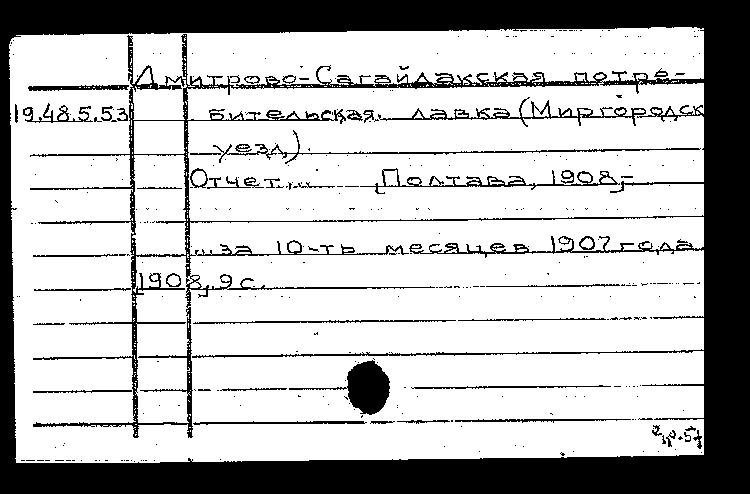 Дмитрово-Сагайдакская потре-
19.48.5.53 бительская лавка (Миргородск
уезд).
Отчет... [Полтава, 1908,-
...за 10-ть месяцев 1907 года
[1908], 9 с.